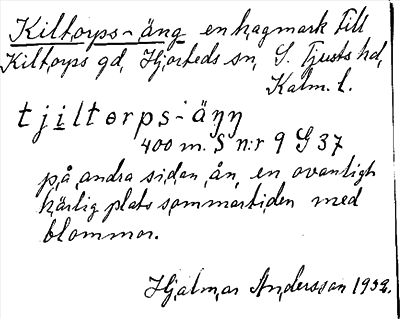 Kiltorps-äng en hagmark till
Kiltorps gd, Hjorteds sn, S. Tjusts hd,
Kalm. l.
tjiltorps-äŋŋ
400 m. S n:r 9 G 37
på andra sidan ån, en ovanligt
härlig plats sommartiden med
blommor.
Hjalmar Andersson 1932.